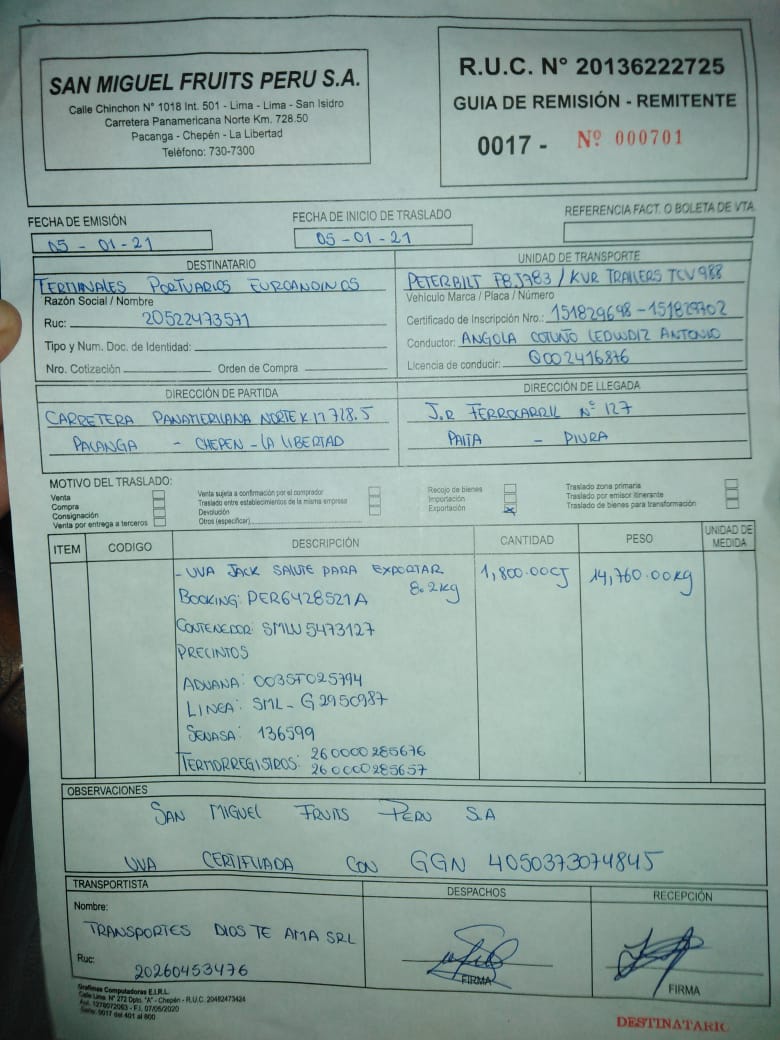 SAN MIGUEL FRUITS PERU S.A.
Calle Chinchon N° 1018 Int. 501 - Lima - Lima - San Isidro
Carretera Panamericana Norte Km. 728.50
Pacanga - Chepén - La Libertad
Teléfono: 730-7300
R.U.C. N° 20136222725
GUIA DE REMISIÓN - REMITENTE
0017 - Nº 000701
FECHA DE EMISIÓN
05 - 01 - 21
FECHA DE INICIO DE TRASLADO
05 - 01 - 21
REFERENCIA FACT. O BOLETA DE VTA.
DESTINATARIO
TERMINALES PORTUARIOS EUROANDINOS
Razón Social / Nombre
Ruc: 20522473571
Tipo y Num. Doc. de Identidad:
Nro. Cotización Orden de Compra
UNIDAD DE TRANSPORTE
PETERBILT F8J783 / KVR TRAILERS TCV988
Vehículo Marca / Placa / Número
Certificado de Inscripción Nro.: 151829698 - 151829702
Conductor: ANGOLA COTUÑO ANTONIO
Licencia de conducir: Q002416876
DIRECCIÓN DE PARTIDA
CARRETERA PANAMERICANA NORTE KM 728.5
PACANGA - CHEPEN - LA LIBERTAD
DIRECCIÓN DE LLEGADA
J.R FERROCARRIL Nº 127
PAITA - PIURA
MOTIVO DEL TRASLADO:
Venta
Compra
Consignación
Venta por entrega a terceros
Venta sujeta a confirmación por el comprador
Traslado entre establecimientos de la misma empresa
Devolución
Otros (especificar)
Recojo de bienes
Importación
Exportación X
Traslado zona primaria
Traslado por emisor itinerante
Traslado de bienes para transformación
ITEM CODIGO DESCRIPCIÓN CANTIDAD PESO UNIDAD DE MEDIDA
- UVA JACK SALUTE PARA EXPORTAR 1,800.00CJ 14,760.00KG
8.2kg
BOOKING: PER6428521A
CONTENEDOR: SMLU 5473127
PRECINTOS
ADUANA: 0035T025794
LINEA: SML - G2950987
SENASA: 136599
TERMORREGISTROS: 260000285676
260000285657
OBSERVACIONES
SAN MIGUEL FRUITS PERU S.A
UVA CERTIFICADA CON GGN 4050373074845
TRANSPORTISTA
Nombre:
TRANSPORTES DIOS TE AMA SRL
Ruc: 20260453476
DESPACHOS
FIRMA
RECEPCIÓN
FIRMA
Grafimas Computadoras E.I.R.L.
Calle Lima N° 272 Dpto. "A" - Chepén - R.U.C. 20482473424
Aut. 1278072063 - F.I. 07/05/2020
Serie: 0017 del 401 al 800
DESTINATARIO